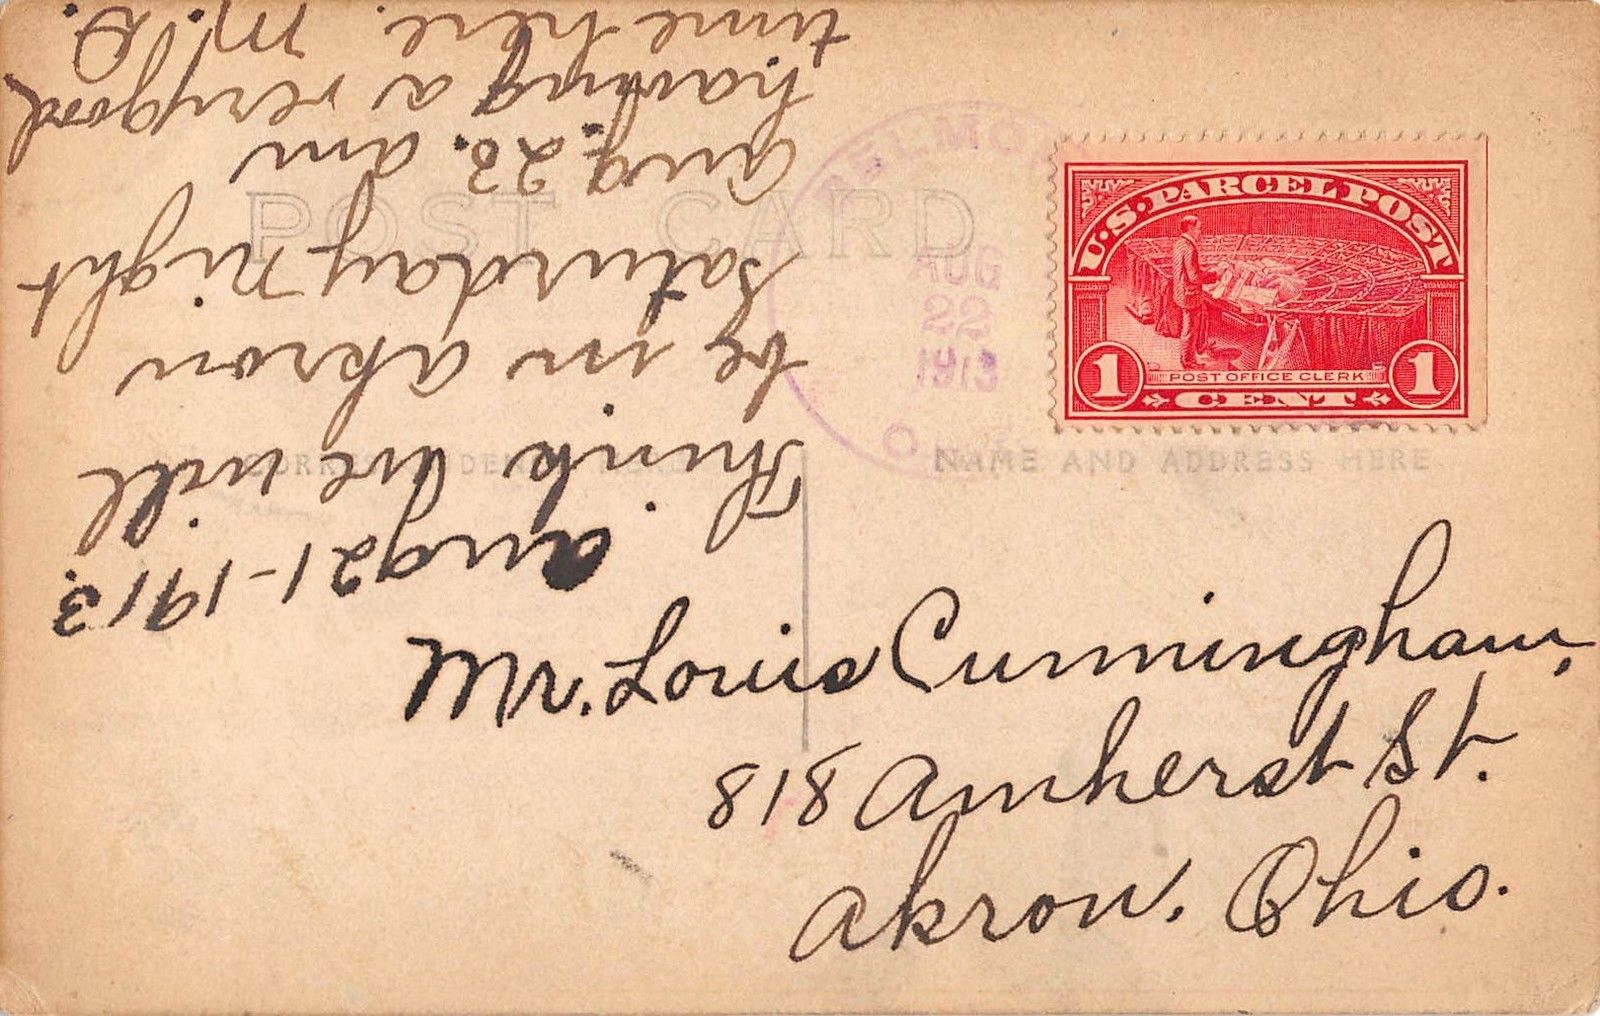 Aug 21-1913.
Think we will
be in akron
Saturday night
aug. 23. am
having a very good
time here. M.D.
POST CARD
BELMO
AUG
22
1913
O
U.S. PARCEL POST
1 POST OFFICE CLERK 1
CENT
NAME AND ADDRESS HERE
Mr. Louis Cunningham,
818 Amherst St.
Akron, Ohio.